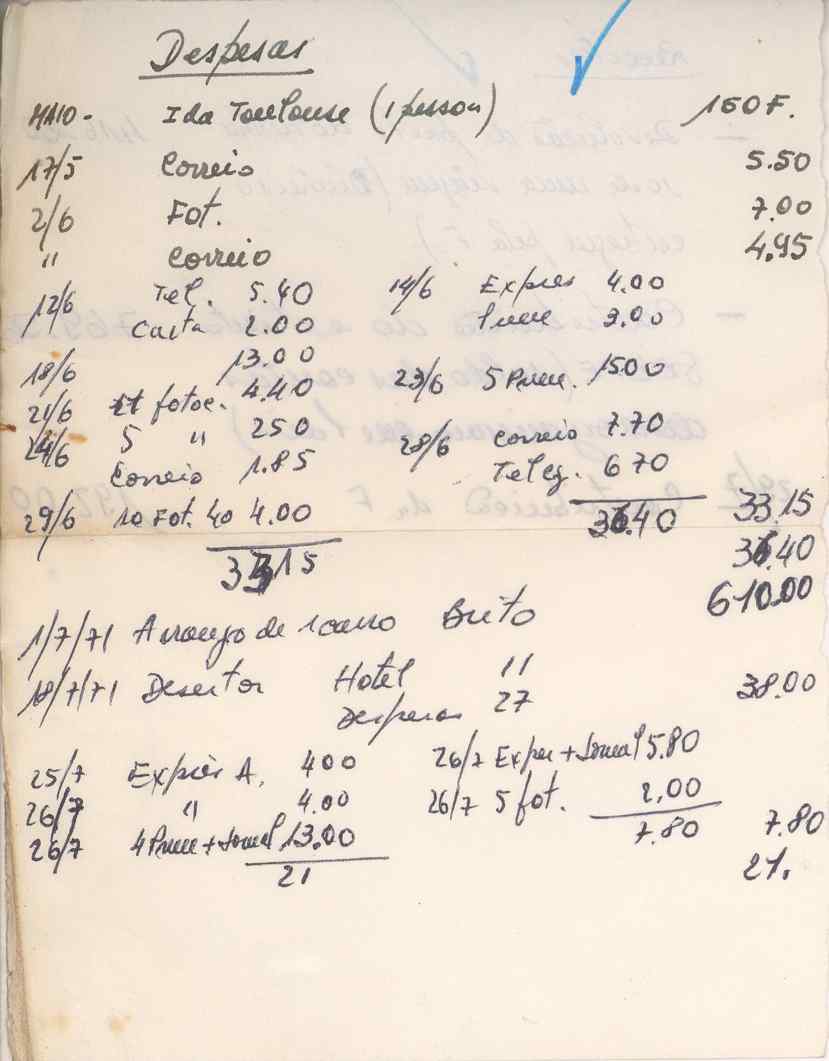 Despesas
MAIO - Ida Toulouse (1 pessoa) 150 F.
17/5 Correio 5.50
2/6 Fot. 7.00
" Correio 4.95
12/6 Tel. 5.40 14/6 Expres 4.00
Carta 2.00 Pneu 3.00
18/6 13.00 23/6 5 Pneu. 1500
21/6 fotoc. 4.40
24/6 5 " 250 28/6 Correio 7.70
Correio 1.85 Teleg. 670
29/6 10 Fot. 40 4.00 36.40 33.15
33 15 36.40
610.00
1/7/71 Arranjo de 1 carro Brito
18/7/71 Desertor Hotel 11 38.00
Despesas 27
25/7 Exprès A. 400 26/7 Expres + Jornal 5.80
26/7 " 4.00 26/7 5 fot. 2,00
26/7 4 Pneu + Jornal 13.00 7.80 7.80
21 21.